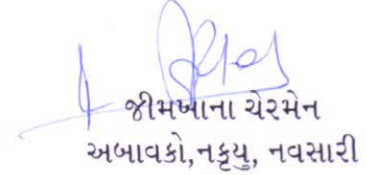 જીમખાના ચેરમેન
અબાવકો,નકૃયુ, નવસારી